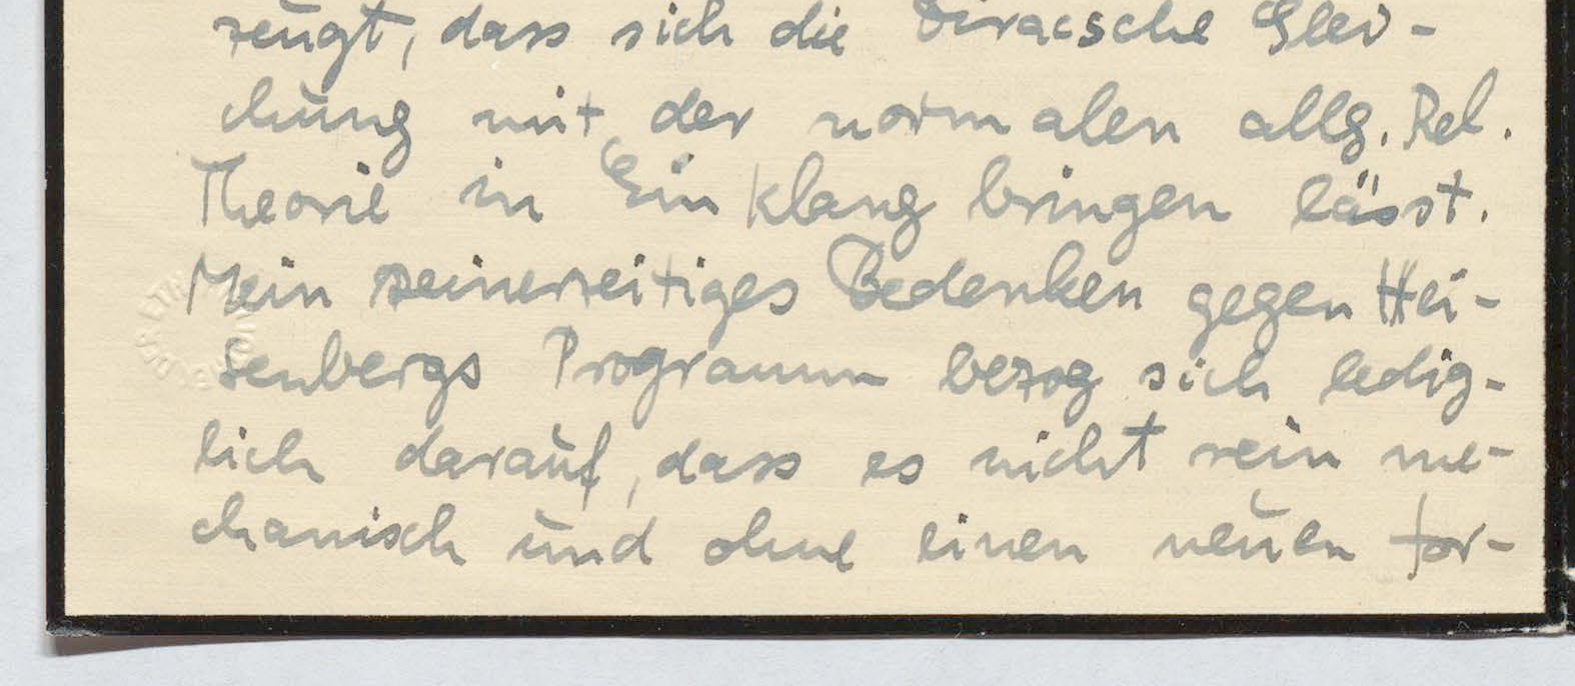 zeugt, dass sich die Diracsche Glei-
chung mit der normalen allg. Rel.
Theorie in Einklang bringen lässt.
Mein seinerzeitiges Bedenken gegen Hei-
senbergs Programm bezog sich ledig-
lich darauf, dass es nicht rein me-
chanisch und ohne einen neuen for-